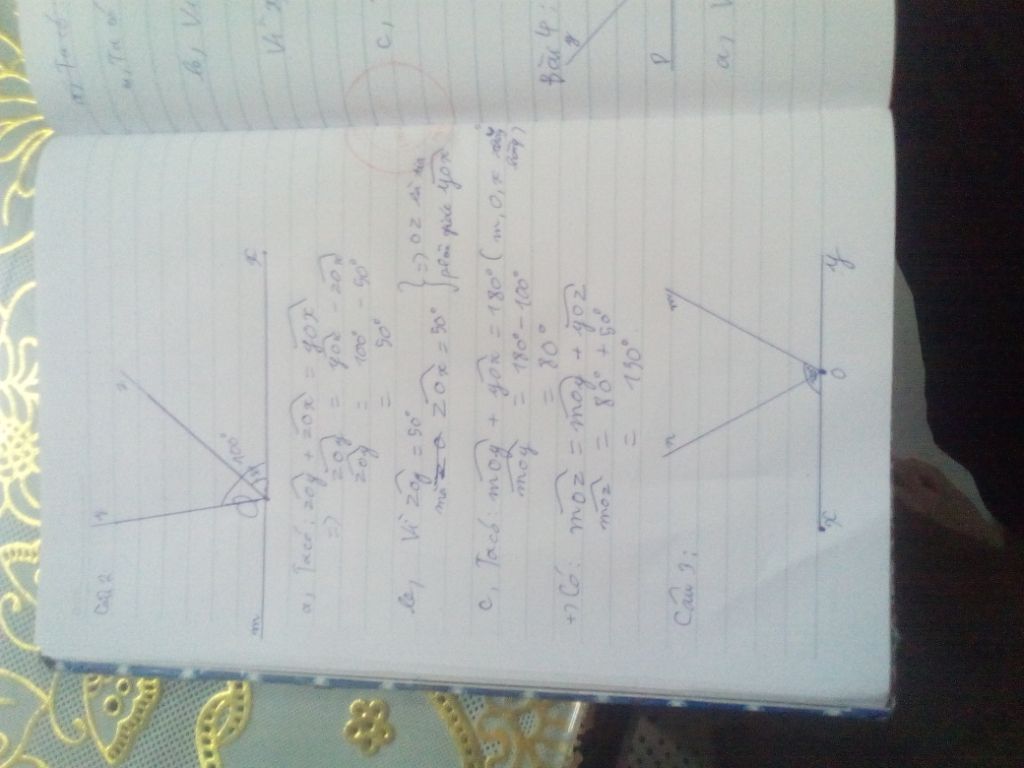 Câu 2
y
z
100°
m
O
x
a, Ta có: zOy + zOx = yOx
=) zOy = yOx - zOx
zOy = 100° - 50°
= 50°
b, Vì zOy = 50°
mà zOx = 50°
=) Oz là tia phân giác yOx
c, Ta có: mOy + yOx = 180° (m, O, x thẳng hàng)
mOy = 180° - 100°
= 80°
+) Có: mOz = mOy + yOz
mOz = 80° + 50°
= 130°
Câu 3:
n
m
x
O
y
a), Ta có
b, Vì
c,
Bài 4:
a, V